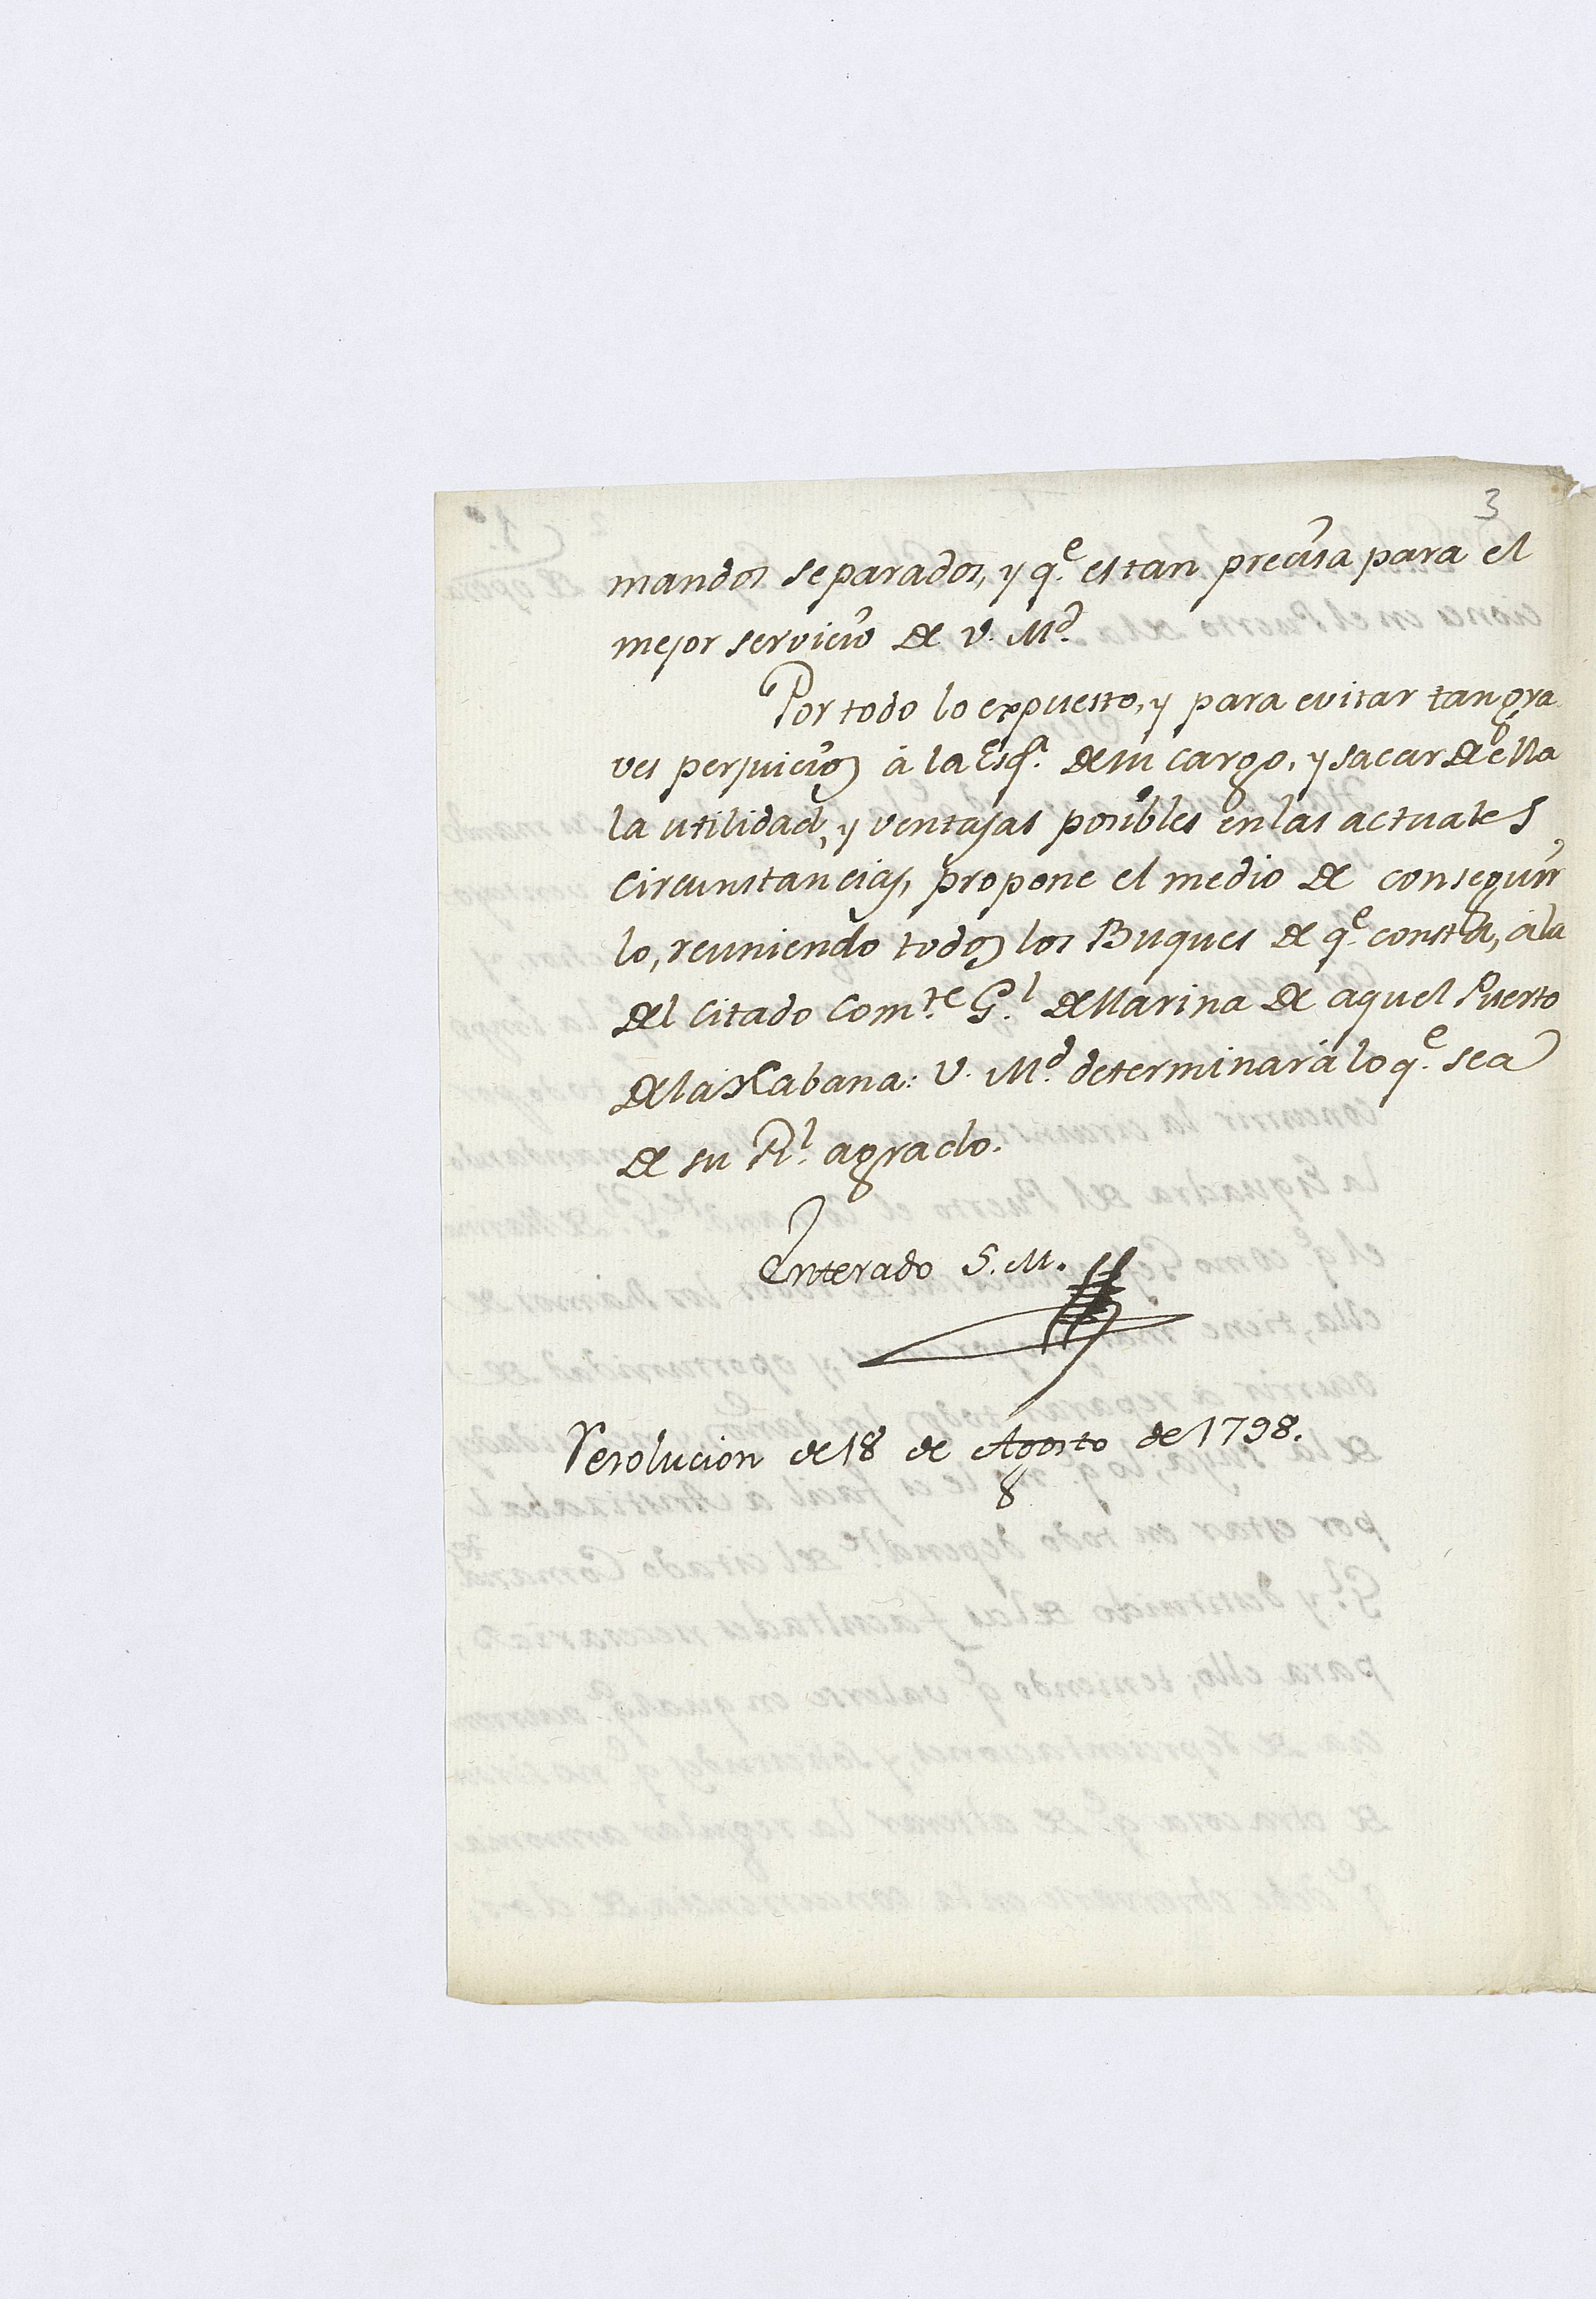 3
mandos separados, y q.e es tan precisa para el
mejor servicio de V. M.d
Por todo lo expuesto, y para evitar tan gra
ves perjuicios á la Esq.a de su cargo, y sacar de ella
la utilidad, y ventajas posibles en las actuales
circunstancias, propone el medio de conseguir
lo, reuniendo todos los Buques de q.e consta, á la
del citado Com.te G.l de Marina de aquel Puerto
de la Habana: V. M.d determinará lo q.e sea
de su R.l agrado.
Enterado S. M.
Resolucion de 18 de Agosto de 1798.
8